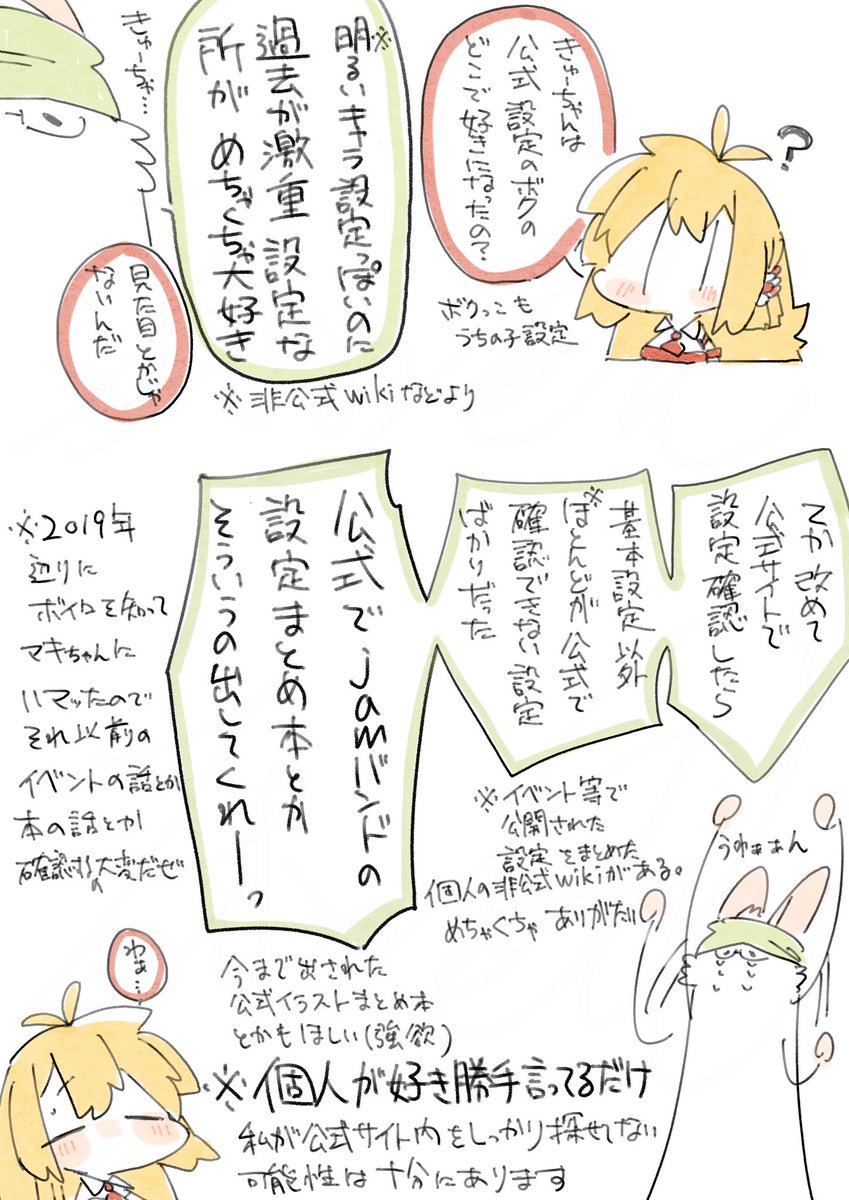 きゅーちゃんは
公式設定のボクの
どこで好きになったの?
?
ボクっこも
うちの子設定
※
明るいキャラ設定っぽいのに
過去が激重設定な
所がめちゃくちゃ大好き
※非公式wikiなどより
きゅーちゃ…
見た目とかじゃ
ないんだ
てか改めて
公式サイトで
設定確認したら
基本設定以外
※ほとんどが公式で
確認できない設定
ばかりだった
※イベント等で
公開された
設定をまとめた
個人の非公式wikiがある。
めちゃくちゃありがたいし
公式でjamバンドの
設定まとめ本とか
そういうの出してくれーっ
今まで出された
公式イラストまとめ本
とかもほしい(強欲)
※2019年
辺りに
ボイロを知って
マキちゃんに
ハマッたので
それ以前の
イベントの話とか
本の話とか
確認するの大変だぜ
うわぁぁん
わぁ…
※個人が好き勝手言ってるだけ
私が公式サイト内をしっかり探せてない
可能性は十分にあります